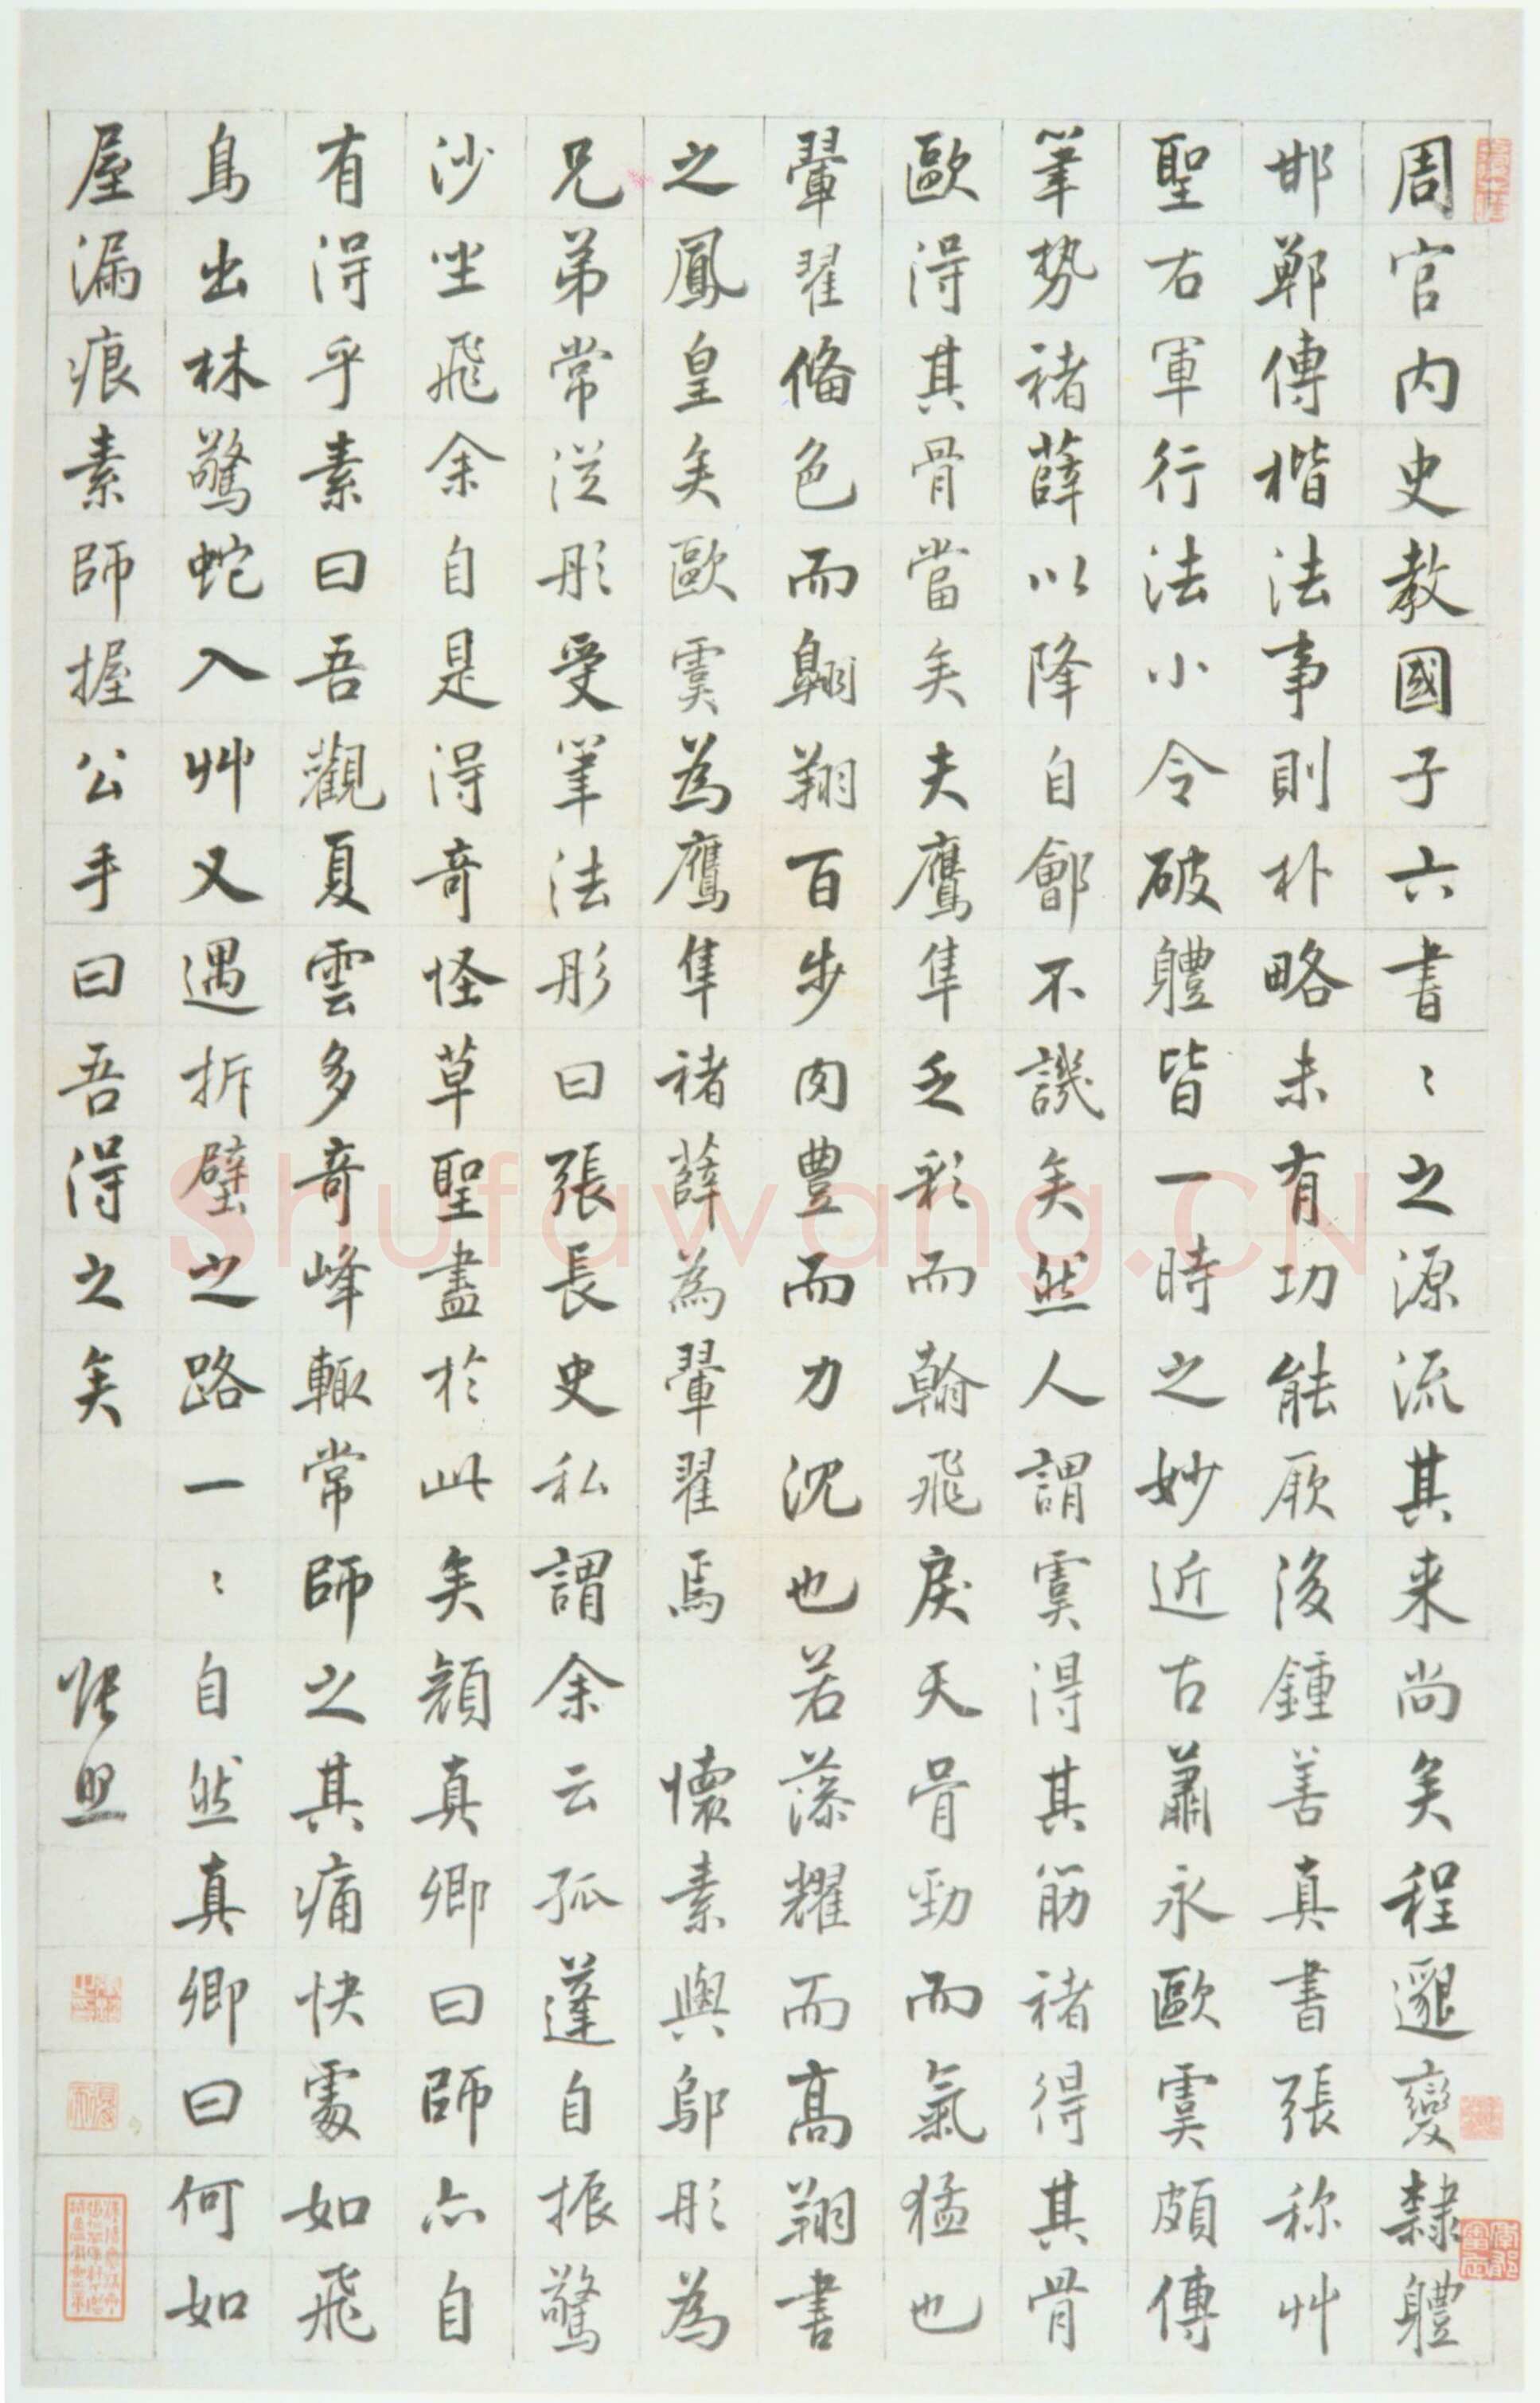 周官内史教國子六書〻之源流其来尚矣程邈變隸體
邯鄲傳楷法事則朴略未有功能厥後鍾善真書張称艸
聖右軍行法小令破體皆一時之妙近古蕭永歐虞頗傳
筆勢褚薛以降自鄶不譏矣然人謂虞得其筋褚得其骨
歐得其骨當矣夫鷹隼乏彩而翰飛戾天骨勁而氣猛也
翬翟俻色而翱翔百步肉豊而力沈也若藻耀而高翔書
之鳳皇矣歐虞為鷹隼褚薛為翬翟焉 懷素與鄔彤為
兄弟常從彤受筆法彤曰張長史私謂余云孤蓬自振驚
沙坐飛余自是得奇怪草聖盡於此矣顔真卿曰師亦自
有得乎素曰吾觀夏雲多奇峰輒常師之其痛快處如飛
鳥出林驚蛇入艸又遇拆壁之路一〻自然真卿曰何如
屋漏痕素師握公手曰吾得之矣 張照
Shufawang.CN